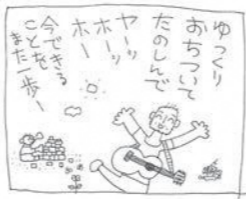 ゆっくり
おちついて
たのしんで
ヤーッ
ホーッ
ホー
今できる
ことを
また一歩ー